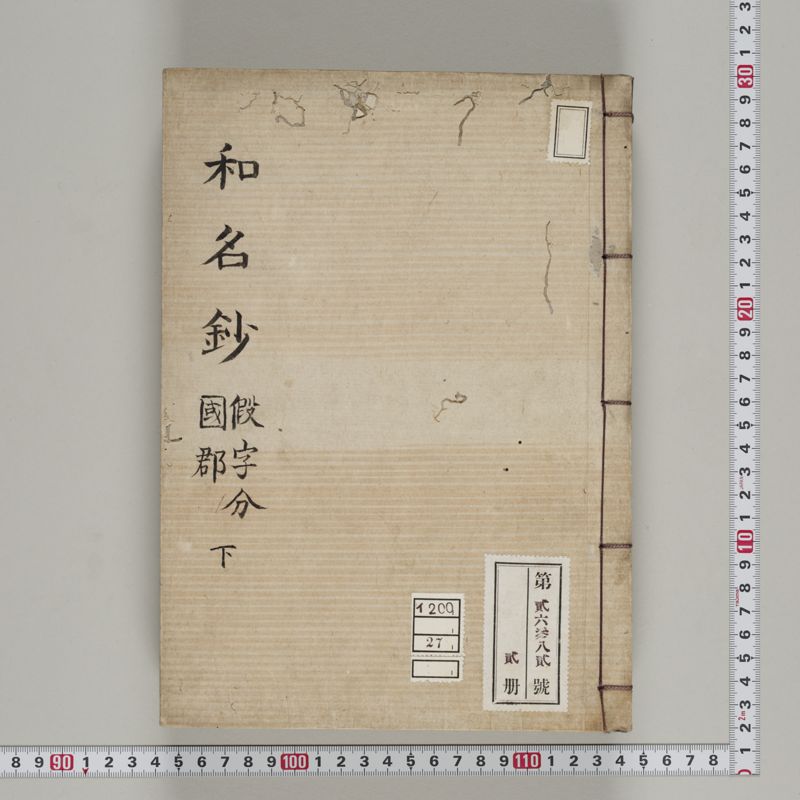 和名鈔
假字分
國郡
下
第貳六叁八貳號
貳册
イ209
27
3 2 1 30 9 8 7 6 5 4 3 2 1 20 9 8 7 6 5 4 3 2 1 10 9 8 7 6 5 4 3 2m 1 0
8 9 90 1 2 3 4 5 6 7 8 9 100 1 2 3 4 5 6 7 8 9 110 1 2 3 4 5 6 7 8